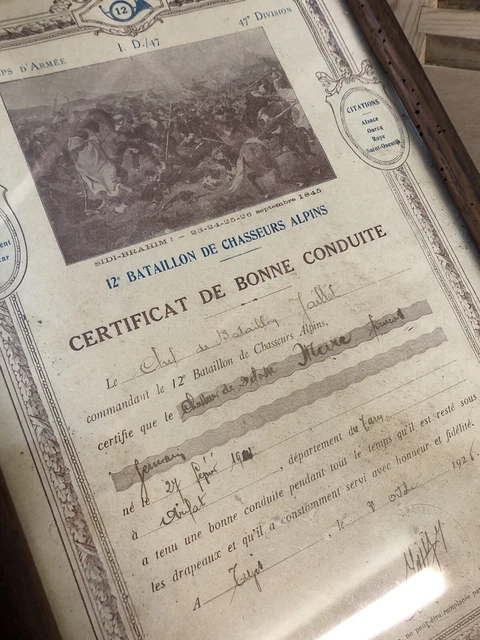 12
PS D'ARMÉE
I. D./47
47e DIVISION
CITATIONS
Alsace
Ourcq
Roye
Saint-Quentin
SIDI-BRAHIM! - 23-24-25-26 septembre 1845
12e BATAILLON DE CHASSEURS ALPINS
CERTIFICAT DE BONNE CONDUITE
Le Chef de Bataillon Jaillet
commandant le 12e Bataillon de Chasseurs Alpins,
certifie que le Chasseur de 2e classe Maxe
né le 27 1901
à , département du Tarn
a tenu une bonne conduite pendant tout le temps qu'il est resté sous
les drapeaux et qu'il a constamment servi avec honneur et fidélité.
A , le 8 1926
ne peut être remplacée